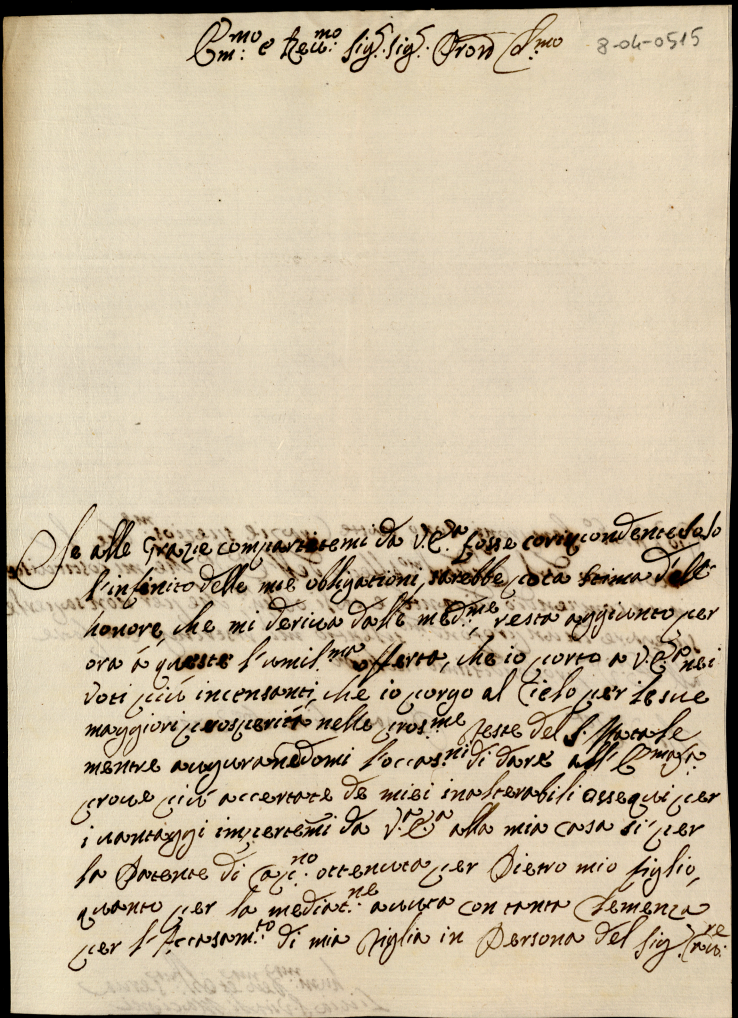 Em.mo e Reu.mo Sig.r Sig.r Pron Col.mo
8-04-0515
Se alle Grazie compartitemi da V.E.a fosse corispondente solo
l'infinito delle mie obligationi, sarebbe poca stima dell'
honore, che mi deriua dalle med.me, resta aggiunto per
ora à queste l'umil.ma offerta, che io porto a V.E.a nei
voti più incessanti, che io porgo al Cielo per le sue
maggiori prosperità nelle pros.me feste del S. Natale
mentre augurandomi l'occas.ni di dare all' E.ma S.a
proue più accertate de miei inalterabili ossequi per
i uantaggi impertemi da V.a E.a alla mia casa si per
la Patente di Cap.no ottenuta per Pietro mio figlio,
quanto per la mediat.ne auuta con tanta Clemenza
per l'Accasam.to di mia figlia in Persona del Sig.